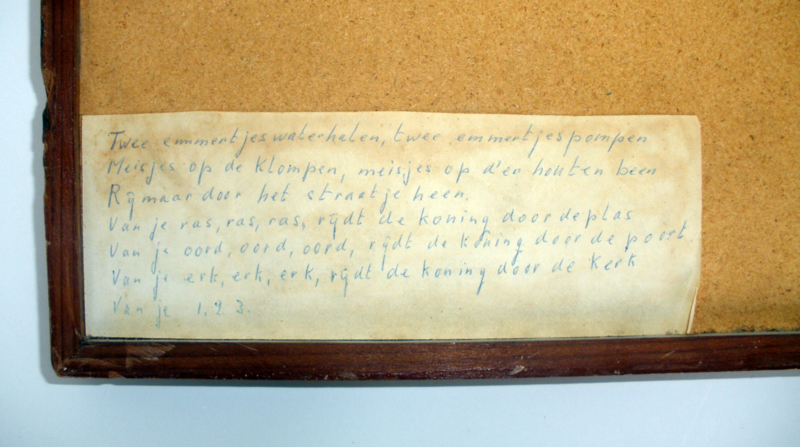 Twee emmertjes waterhalen, twee emmertjes pompen
Meisjes op de Klompen, meisjes op d'er houten been
Rij maar door het straatje heen.
Van je ras, ras, ras, rijdt de koning door de plas
Van je oord, oord, oord, rijdt de koning door de poort.
Van je erk, erk, erk, rijdt de koning door de Kerk
Van je 1.2.3.